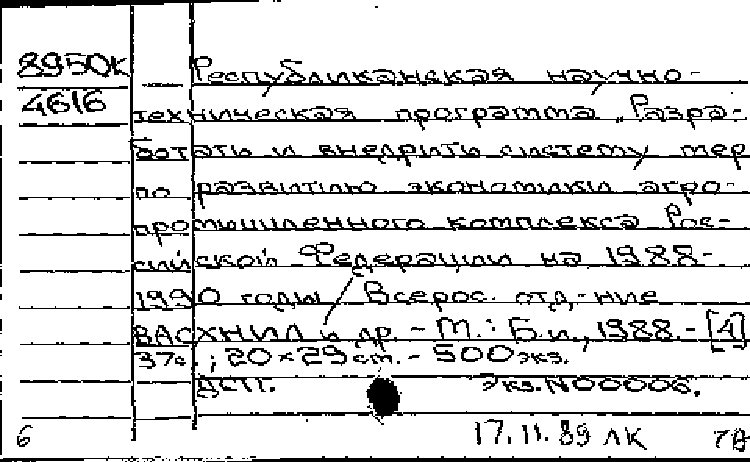 8950к Республиканская научно-
4616 техническая программа „Разра-
ботать и внедрить систему мер
по развитию экономики агро-
промышленного комплекса Рос-
сийской Федерации на 1988-
1990 годы / Всерос. отд-ние
ВАСХНИЛ и др. - М.: Б.и., 1988. - [4]
37с.; 20×29 см. - 500 экз.
ДСП. Экз.N00006.
6 17.11.89 ЛК ТВ